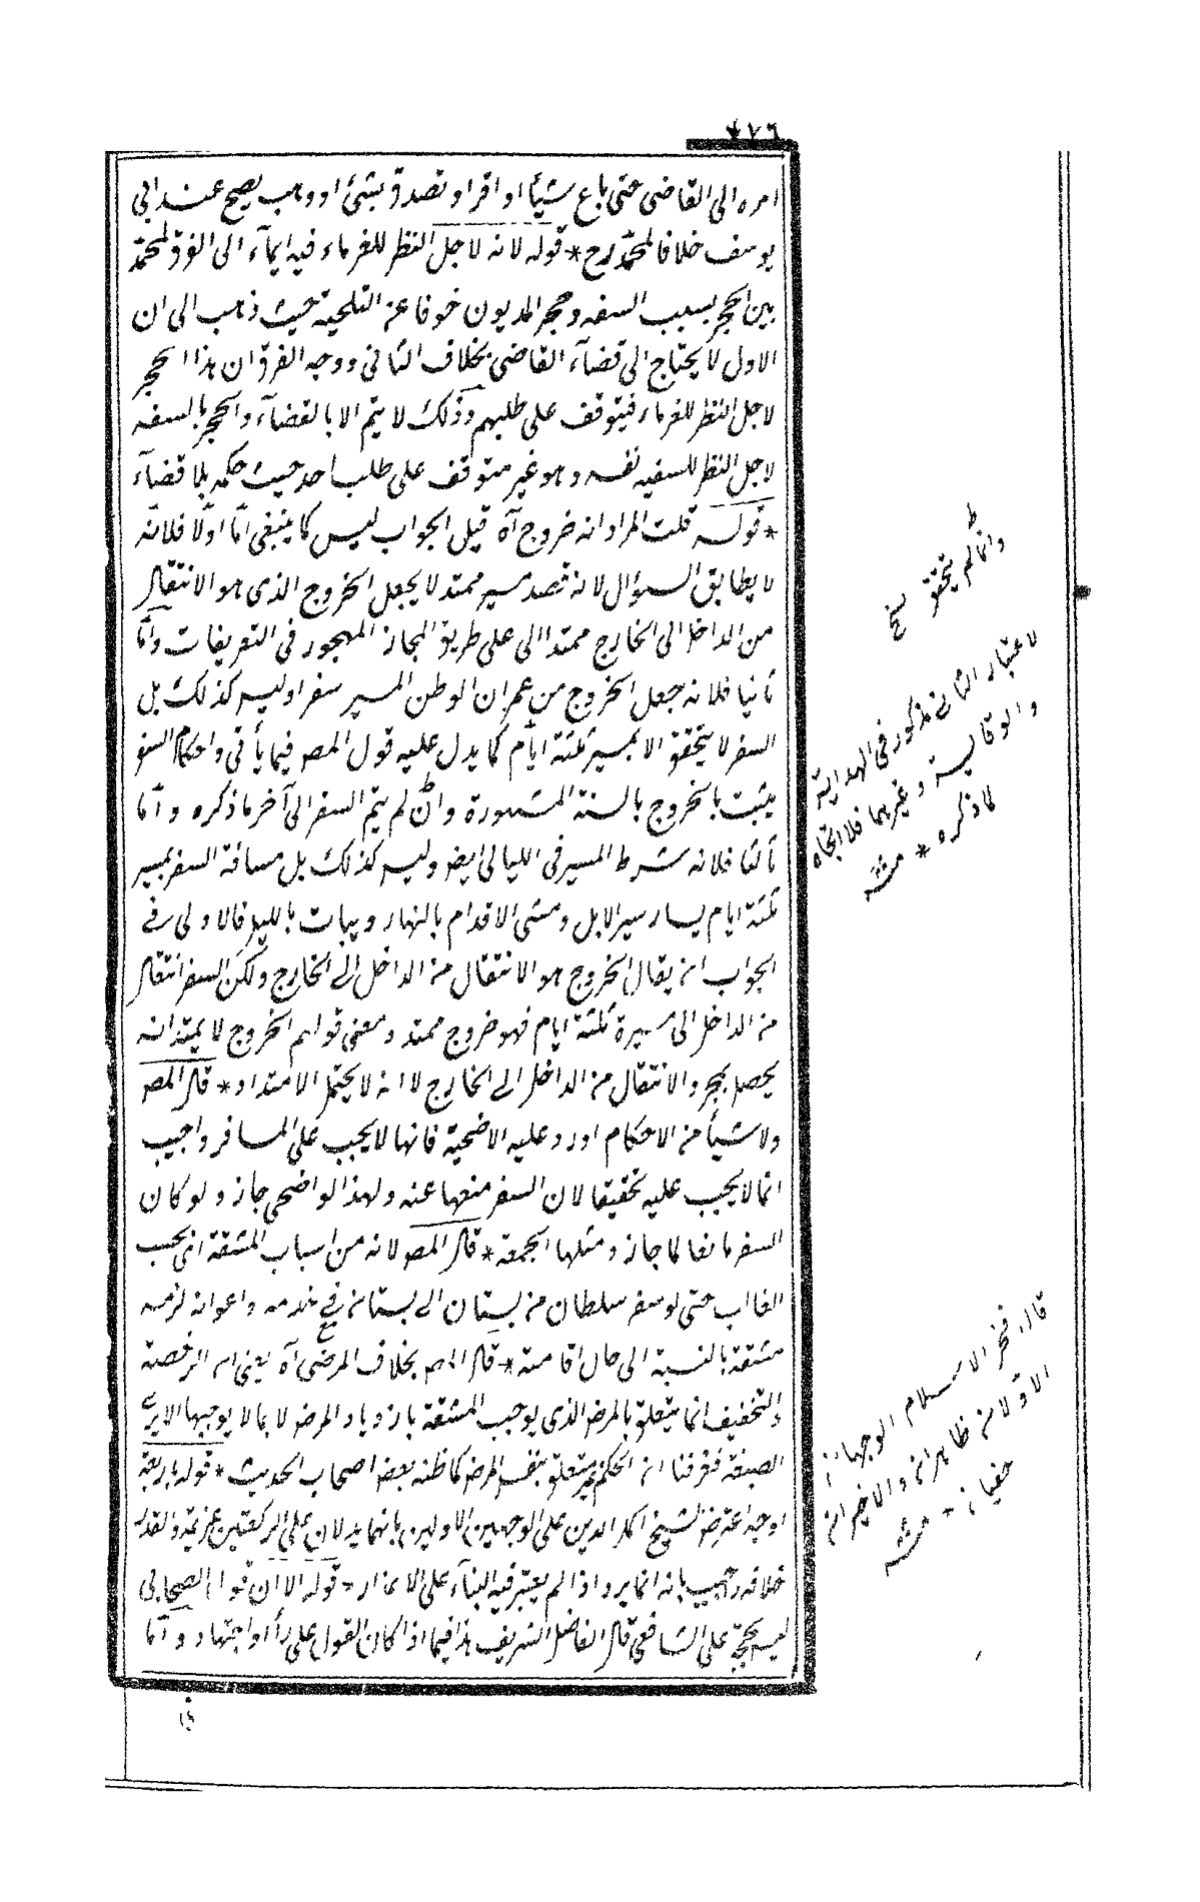 ٧٢٦
امره الى القاضى حتى باع شيأ او اقر او تصدق بشئ او وهب يصح عند ابى
يوسف خلافا لمحمد رح * قوله لانه لاجل النظر للغرماء فيه ايمآء الى الفرق لمحمد
بين الحجر بسبب السفه وحجر المديون خوفا عن التلجية حيث ذهب الى ان
الاول لا يحتاج الى قضآء القاضى بخلاف الثانى ووجه الفرق ان هذا الحجر
لاجل النظر للغرماء فيتوقف على طلبهم وذلك لا يتم الا بالقضآء والحجر بالسفه
لاجل النظر للسفيه نفسه وهو غير متوقف على طلب احد حيث حكمه بلا قضآء
* قوله قلت المراد انه خروج آه قيل الجواب ليس كما ينبغى امّا اوّلا فلانّه
لا يطابق السؤال لانه قصد سير ممتد لا يجعل الخروج الذى هو الانتقال
من الداخل الى الخارج ممتدا الى على طريق المجاز المهجور فى التعريفات وامّا
ثانيا فلانه جعل الخروج من عمران الوطن المسير سفرا وليس كذلك بل
السفر لا يتحقق الا بمسير ثلثة ايام كما يدل عليه قول المص فيما يأتى واحكام السفر
يثبت بالخروج بالسنة المشهورة وان لم يتم السفر الى آخر ما ذكره وامّا
ثالثا فلانه شرط المسير فى الليالى ايضا وليس كذلك بل مسافة السفر بمسير
ثلثة ايام يسار سير الابل ومشى الاقدام بالنهار ويبات بالليل فالاولى فى
الجواب ان يقال الخروج هو الانتقال من الداخل الى الخارج ولكن السفر انتقال
من الداخل الى مسيرة ثلثة ايام فهو خروج ممتد ومعنى قولهم الخروج لا يمتد انه
يحصل بمجرد الانتقال من الداخل الى الخارج لا انه لا يحتمل الامتداد * قال المص
ولا شيأ من الاحكام اورد عليه الاضحية فانها لا يجب على المسافر واجيب
انما لا يجب عليه تخفيفا لان السفر منعها عنه ولهذا لو اضحى جاز ولو كان
السفر مانعا لما جاز ومثلها الجمعة * قال المص لانه من اسباب المشقة اى بحسب
الغالب حتى لو سفر سلطان من بستان الى بستان فى خدمه واعوانه لزمه
مشقة بالنسبة الى حال اقامته * قال المص بخلاف المرض آه يعنى ان الرخصة
والتخفيف انما يتعلق بالمرض الذى يوجب المشقة بازدياد المرض لا بما لا يوجبها الا يرى
الصيغة فعرفنا ان الحكم غير متعلق بنفس المرض كما ظنه بعض اصحاب الحديث * قوله باربعة
اوجه اعترض الشيخ اكمل الدين على الوجهين الاولين بانهما يدلان على الركعتين عزيمة والقدر
خلافه واجيب بانه انما يرد اذا لم يعتبر فيه البناء على الاعذار * قوله الا ان قول الصحابى
ليس بحجة على الشافعى قال الفاضل الشريف هذا فيما اذا كان القول على رأى واجتهاد وامّا
وانما لم يتحقق نسخ
لاعتبار الثانى مذكور فى الهداية
والوقاية وغيرهما فلا اتجاه
لما ذكره * منه
قال فخر الاسلام الوجهان
الاولان ظاهران والاخيران
خفيان * منه